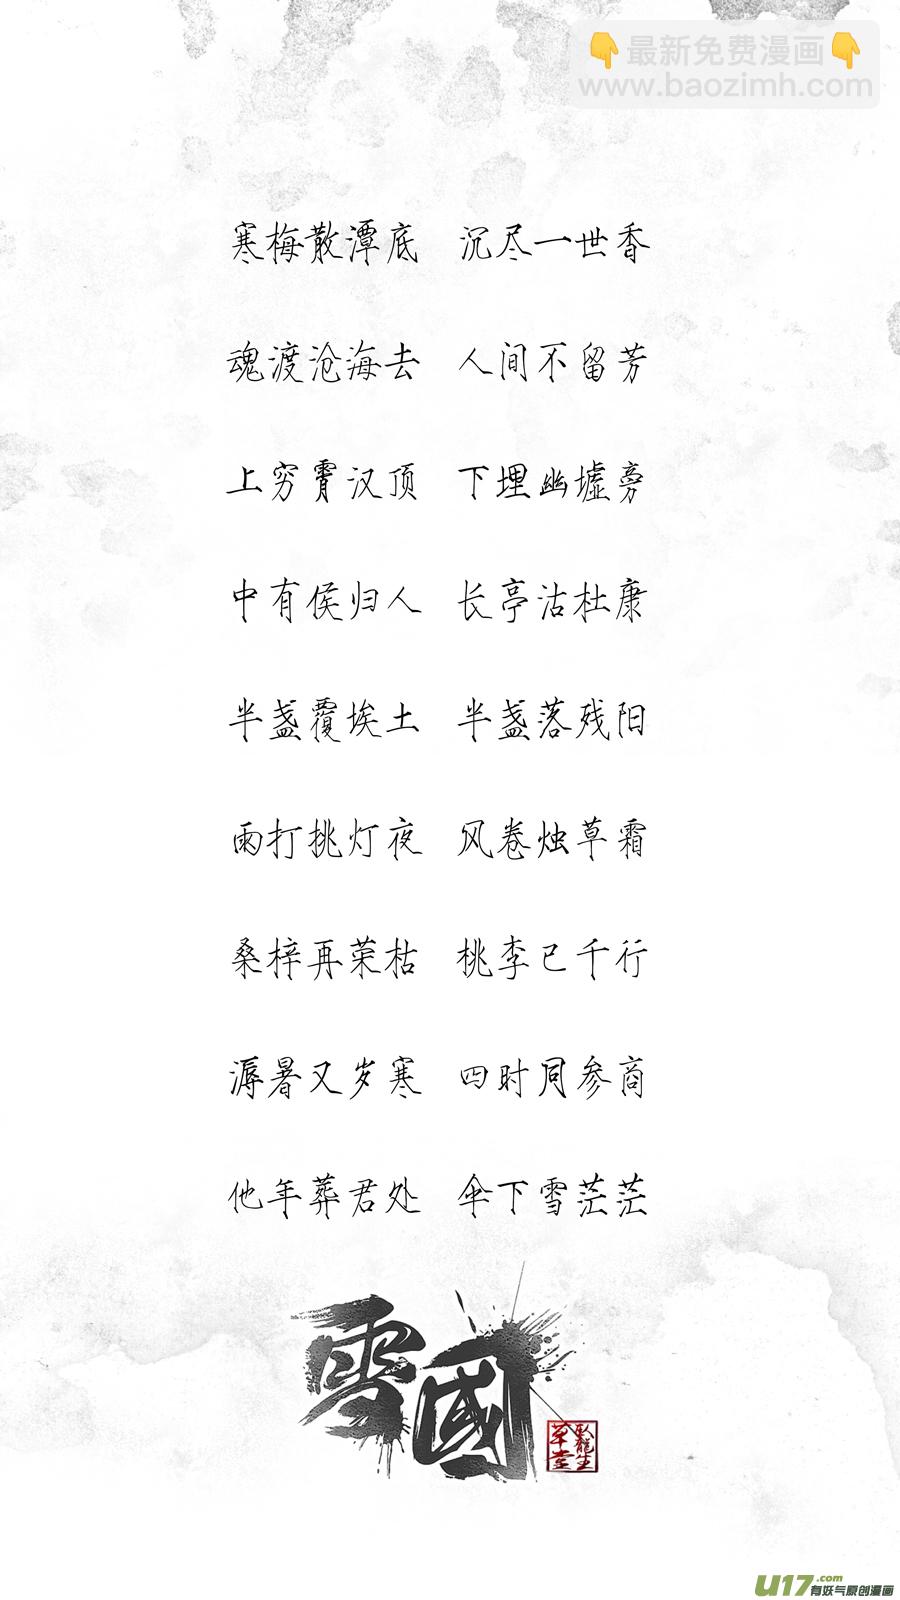 👇最新免费漫画👇
www.baozimh.com
寒梅散潭底 沉尽一世香
魂渡沧海去 人间不留芳
上穷霄汉顶 下埋幽墟旁
中有侯归人 长亭沽杜康
半盏覆埃土 半盏落残阳
雨打挑灯夜 风卷烛草霜
桑梓再荣枯 桃李已千行
溽暑又岁寒 四时同参商
他年葬君处 伞下雪茫茫
雪國
卧龍生
草堂
U17.com
有妖气原创漫画